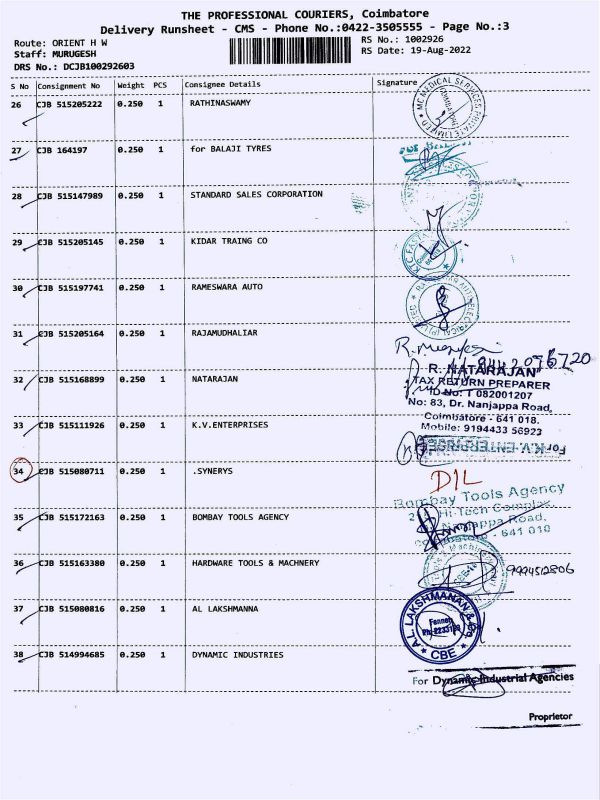 THE PROFESSIONAL COURIERS, Coimbatore
Delivery Runsheet - CMS - Phone No.:0422-3505555 - Page No.:3
Route: ORIENT H W
RS No.: 1002926
Staff: MURUGESH
RS Date: 19-Aug-2022
DRS No.: DCJB100292603
S No Consignment No Weight PCS Consignee Details Signature
26 CJB 515205222 0.250 1 RATHINASWAMY
MC MEDICAL SERVICES PRIVATE LIMITED
27 CJB 164197 0.250 1 for BALAJI TYRES
28 CJB 515147989 0.250 1 STANDARD SALES CORPORATION
29 CJB 515205145 0.250 1 KIDAR TRAING CO
30 CJB 515197741 0.250 1 RAMESWARA AUTO
31 CJB 515205164 0.250 1 RAJAMUDHALIAR
32 CJB 515168899 0.250 1 NATARAJAN
R. NATARAJAN
TAX RETURN PREPARER
ID No: T 082001207
No: 83, Dr. Nanjappa Road,
Coimbatore - 641 018.
Mobile: 9194433 56923
33 CJB 515111926 0.250 1 K.V.ENTERPRISES
For K.V. ENTERPRISES
34 CJB 515080711 0.250 1 .SYNERYS
D1L
35 CJB 515172163 0.250 1 BOMBAY TOOLS AGENCY
Bombay Tools Agency
Hi-Tech Complex,
Nanjappa Road,
Coimbatore - 641 018
36 CJB 515163380 0.250 1 HARDWARE TOOLS & MACHNERY
9994512806
37 CJB 515080816 0.250 1 AL LAKSHMANNA
A.L. LAKSHMANAN & Co.
CBE
38 CJB 514994685 0.250 1 DYNAMIC INDUSTRIES
For Dynamic Industrial Agencies
Proprietor